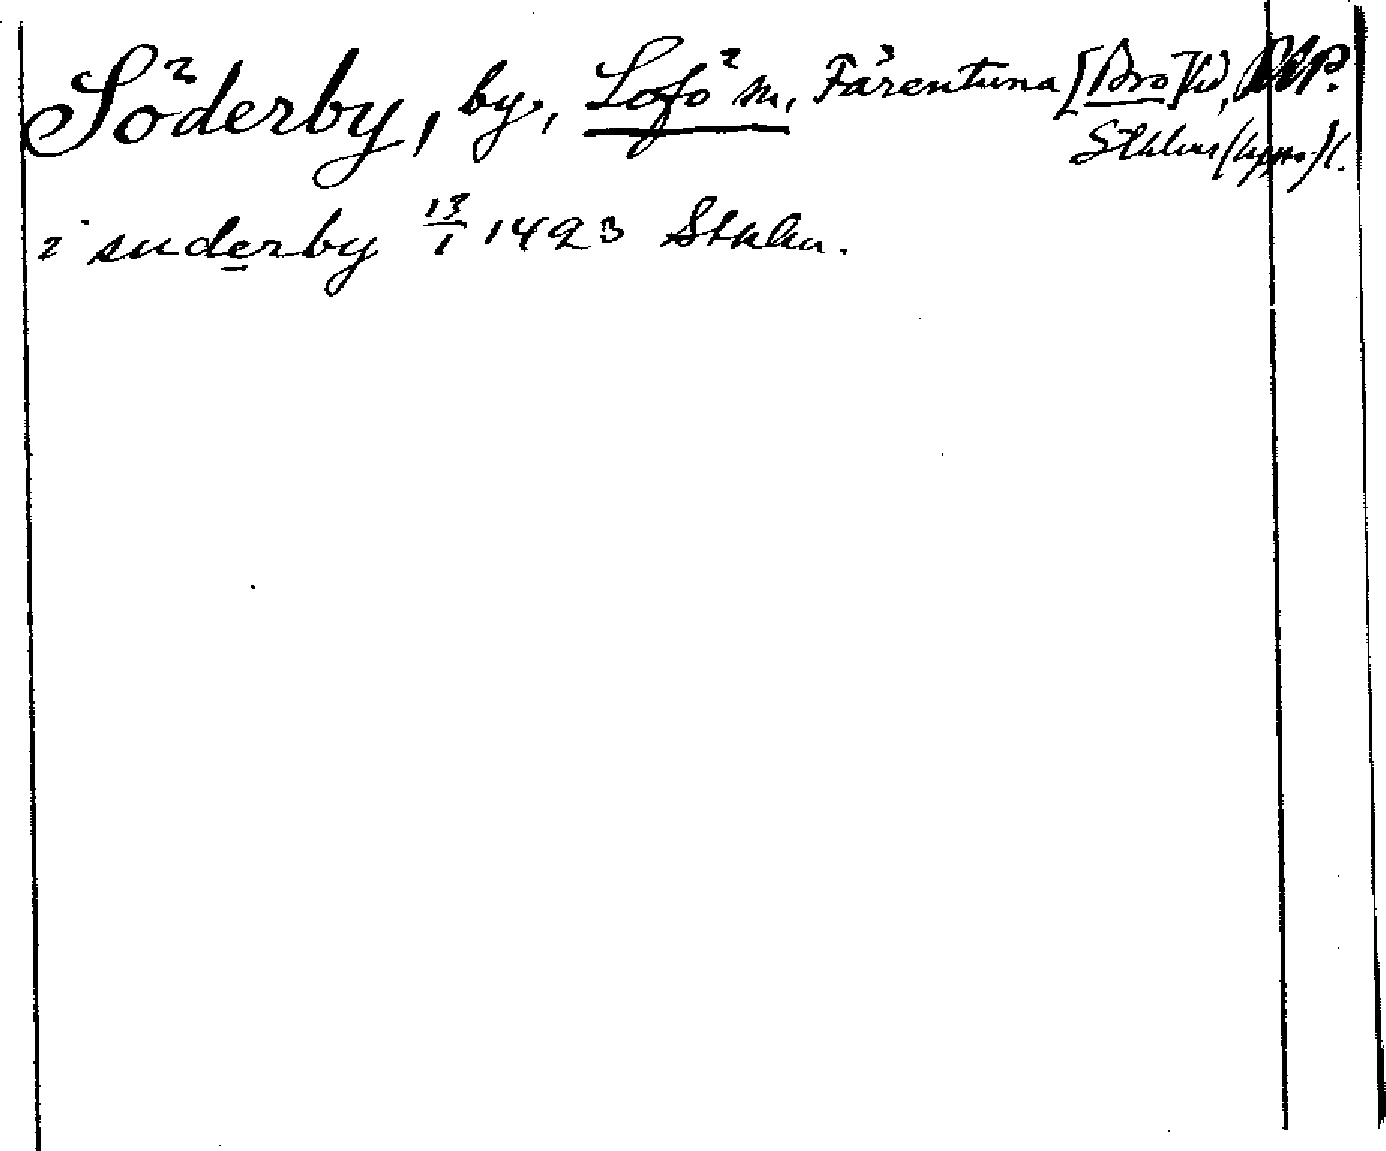 Söderby, by, Lofö sn, Färentuna [Bro] hd, Upl.
Sthlms (Upps.) l.
i suderby 13/1 1423 Sthlm.